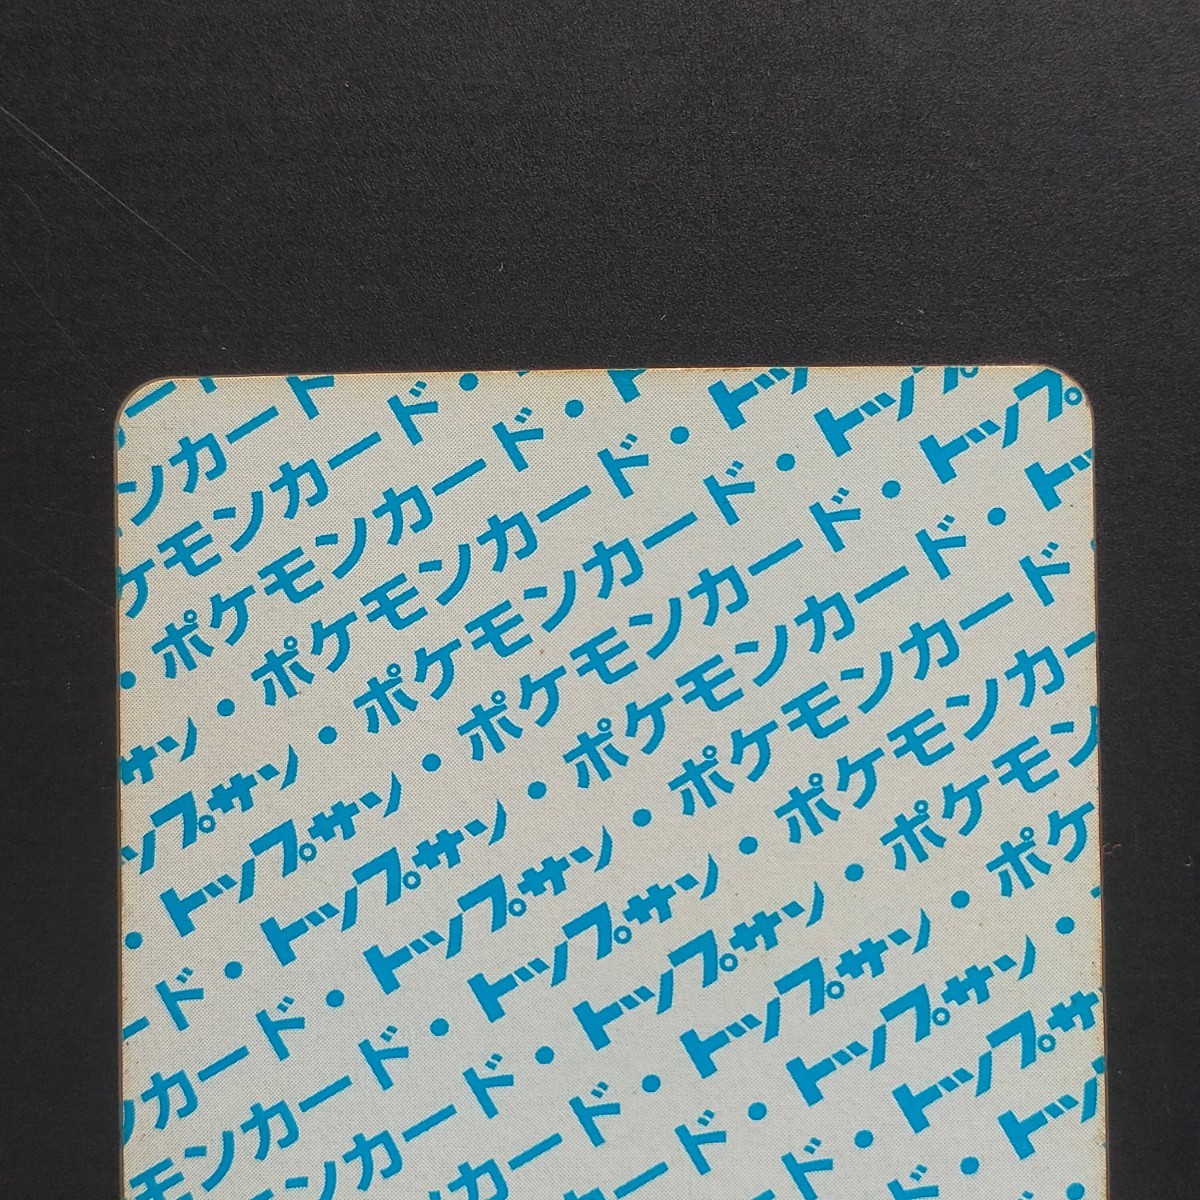 ンカード
ケモンカード・
・ポケモンカード・ト
サン・ポケモンカード・トッ
ップサン・ポケモンカード・トップ
トップサン・ポケモンカード・トップ
・トップサン・ポケモンカード・トッ
ード・トップサン・ポケモンカード
ンカード・トップサン・ポケモンカー
モンカード・トップサン・ポケモン
ンカード・トップサン・ポケ
カード・トップサン・
ド・トップサ
・トッ